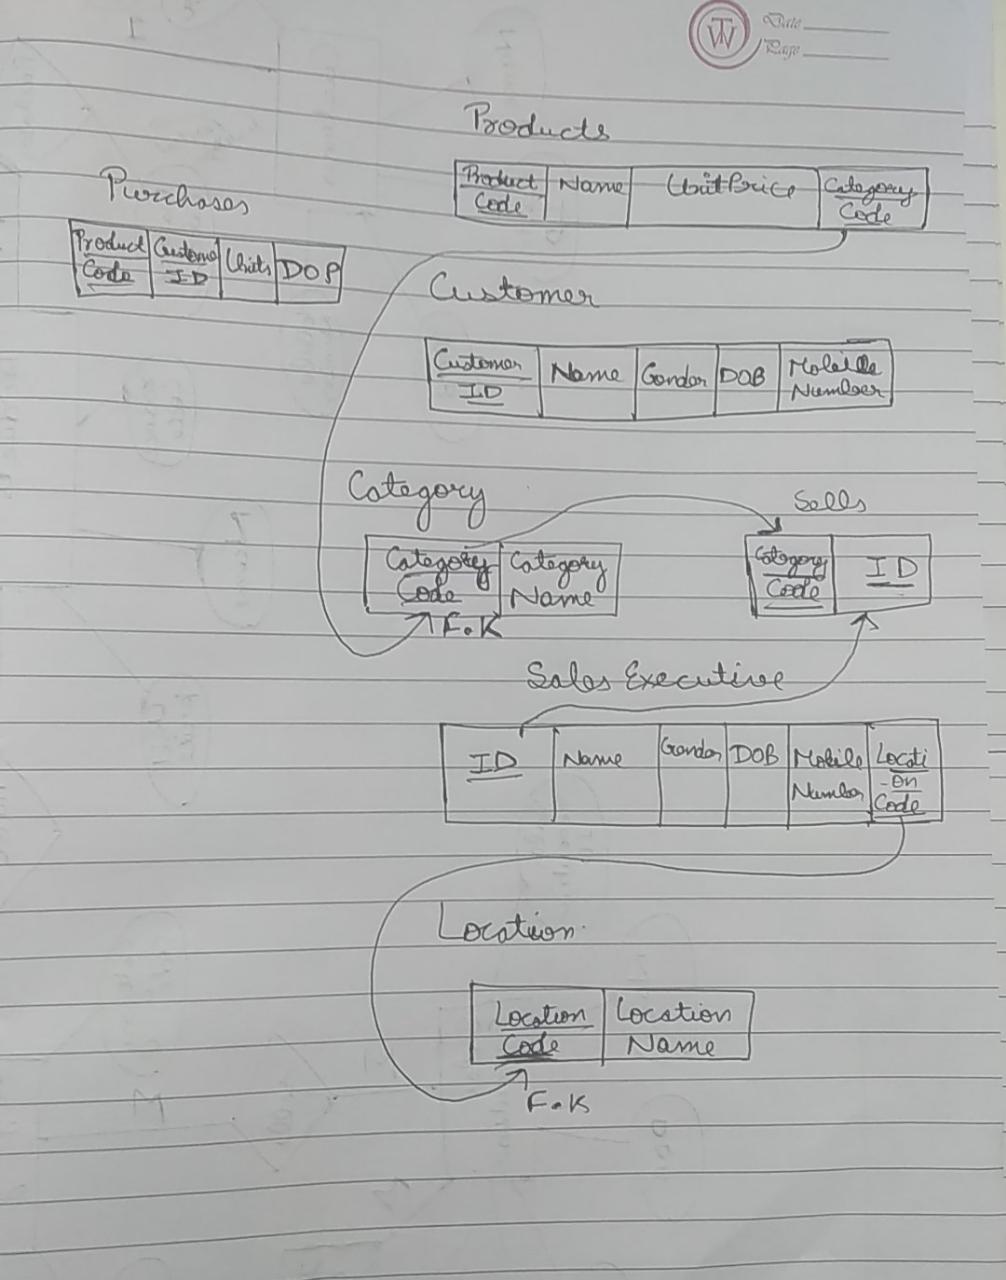 TW
Date
Page
Products
Product Code | Name | Unit Price | Category Code
Purchases
Product Code | Custome ID | Units | DOP
Customer
Customer ID | Name | Gender | DOB | Mobile Number
Category
Category Code | Category Name
F.K
Sells
Category Code | ID
Sales Executive
ID | Name | Gender | DOB | Mobile Number | Locati-on Code
Location
Location Code | Location Name
F.K